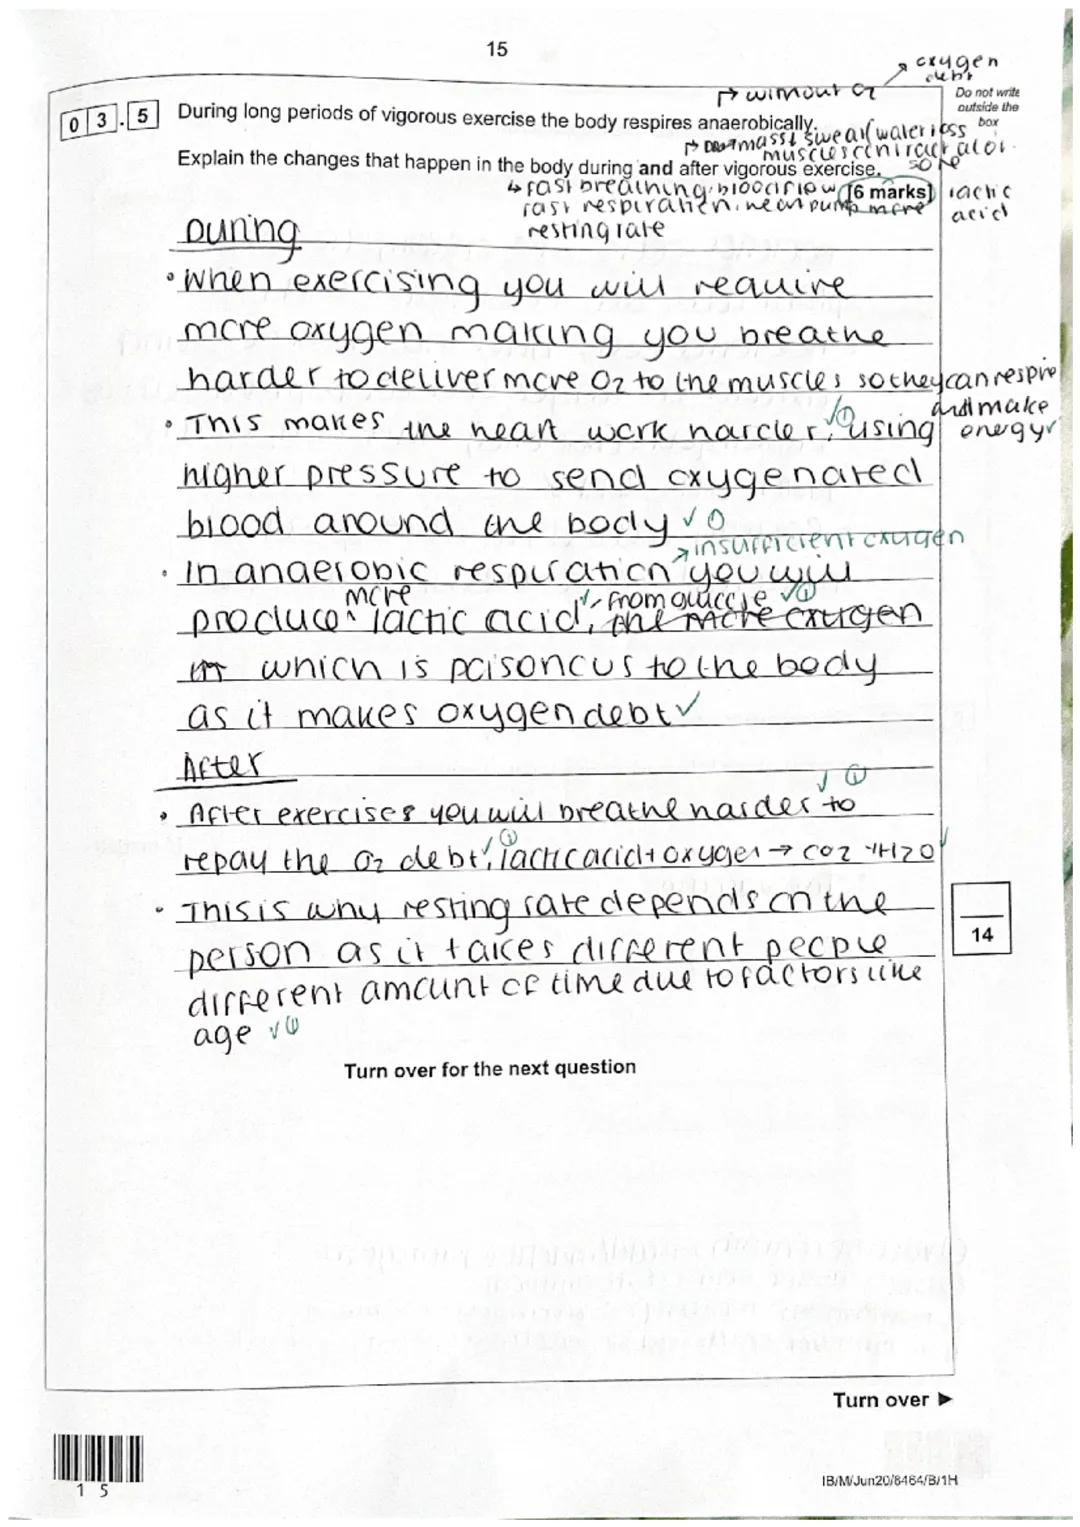 15
→ oxygen debt
↱ without O2
Do not write outside the box
0 3 . 5 During long periods of vigorous exercise the body respires anaerobically.
↱ mass↓ swear/water loss
muscles contract a lot. sore
Explain the changes that happen in the body during and after vigorous exercise.
↳ fast breathing, blood flow [6 marks] lactic acid
fast respiration, heart pump more
resting rate
During
• When exercising you will require
more oxygen making you breathe
harder to deliver more O2 to the muscles so they can respire
and make energy ✓
• This makes the heart work harder, ✓① using
higher pressure to send oxygenated
blood around the body ✓①
→ insufficient oxygen
• In anaerobic respiration you will
produce more lactic acid, ✓ from glucose ✓① the more oxygen
which is poisonous to the body
as it makes oxygen debt ✓
After
✓ ①
• After exercises you will breathe harder to
repay the O2 debt, ✓① lactic acid + oxygen → CO2 + H2O ✓
• This is why resting rate depends on the
person as it takes different people
different amount of time due to factors like
age ✓①
14
Turn over for the next question
Turn over ►
1 5
IB/M/Jun20/8464/B/1H